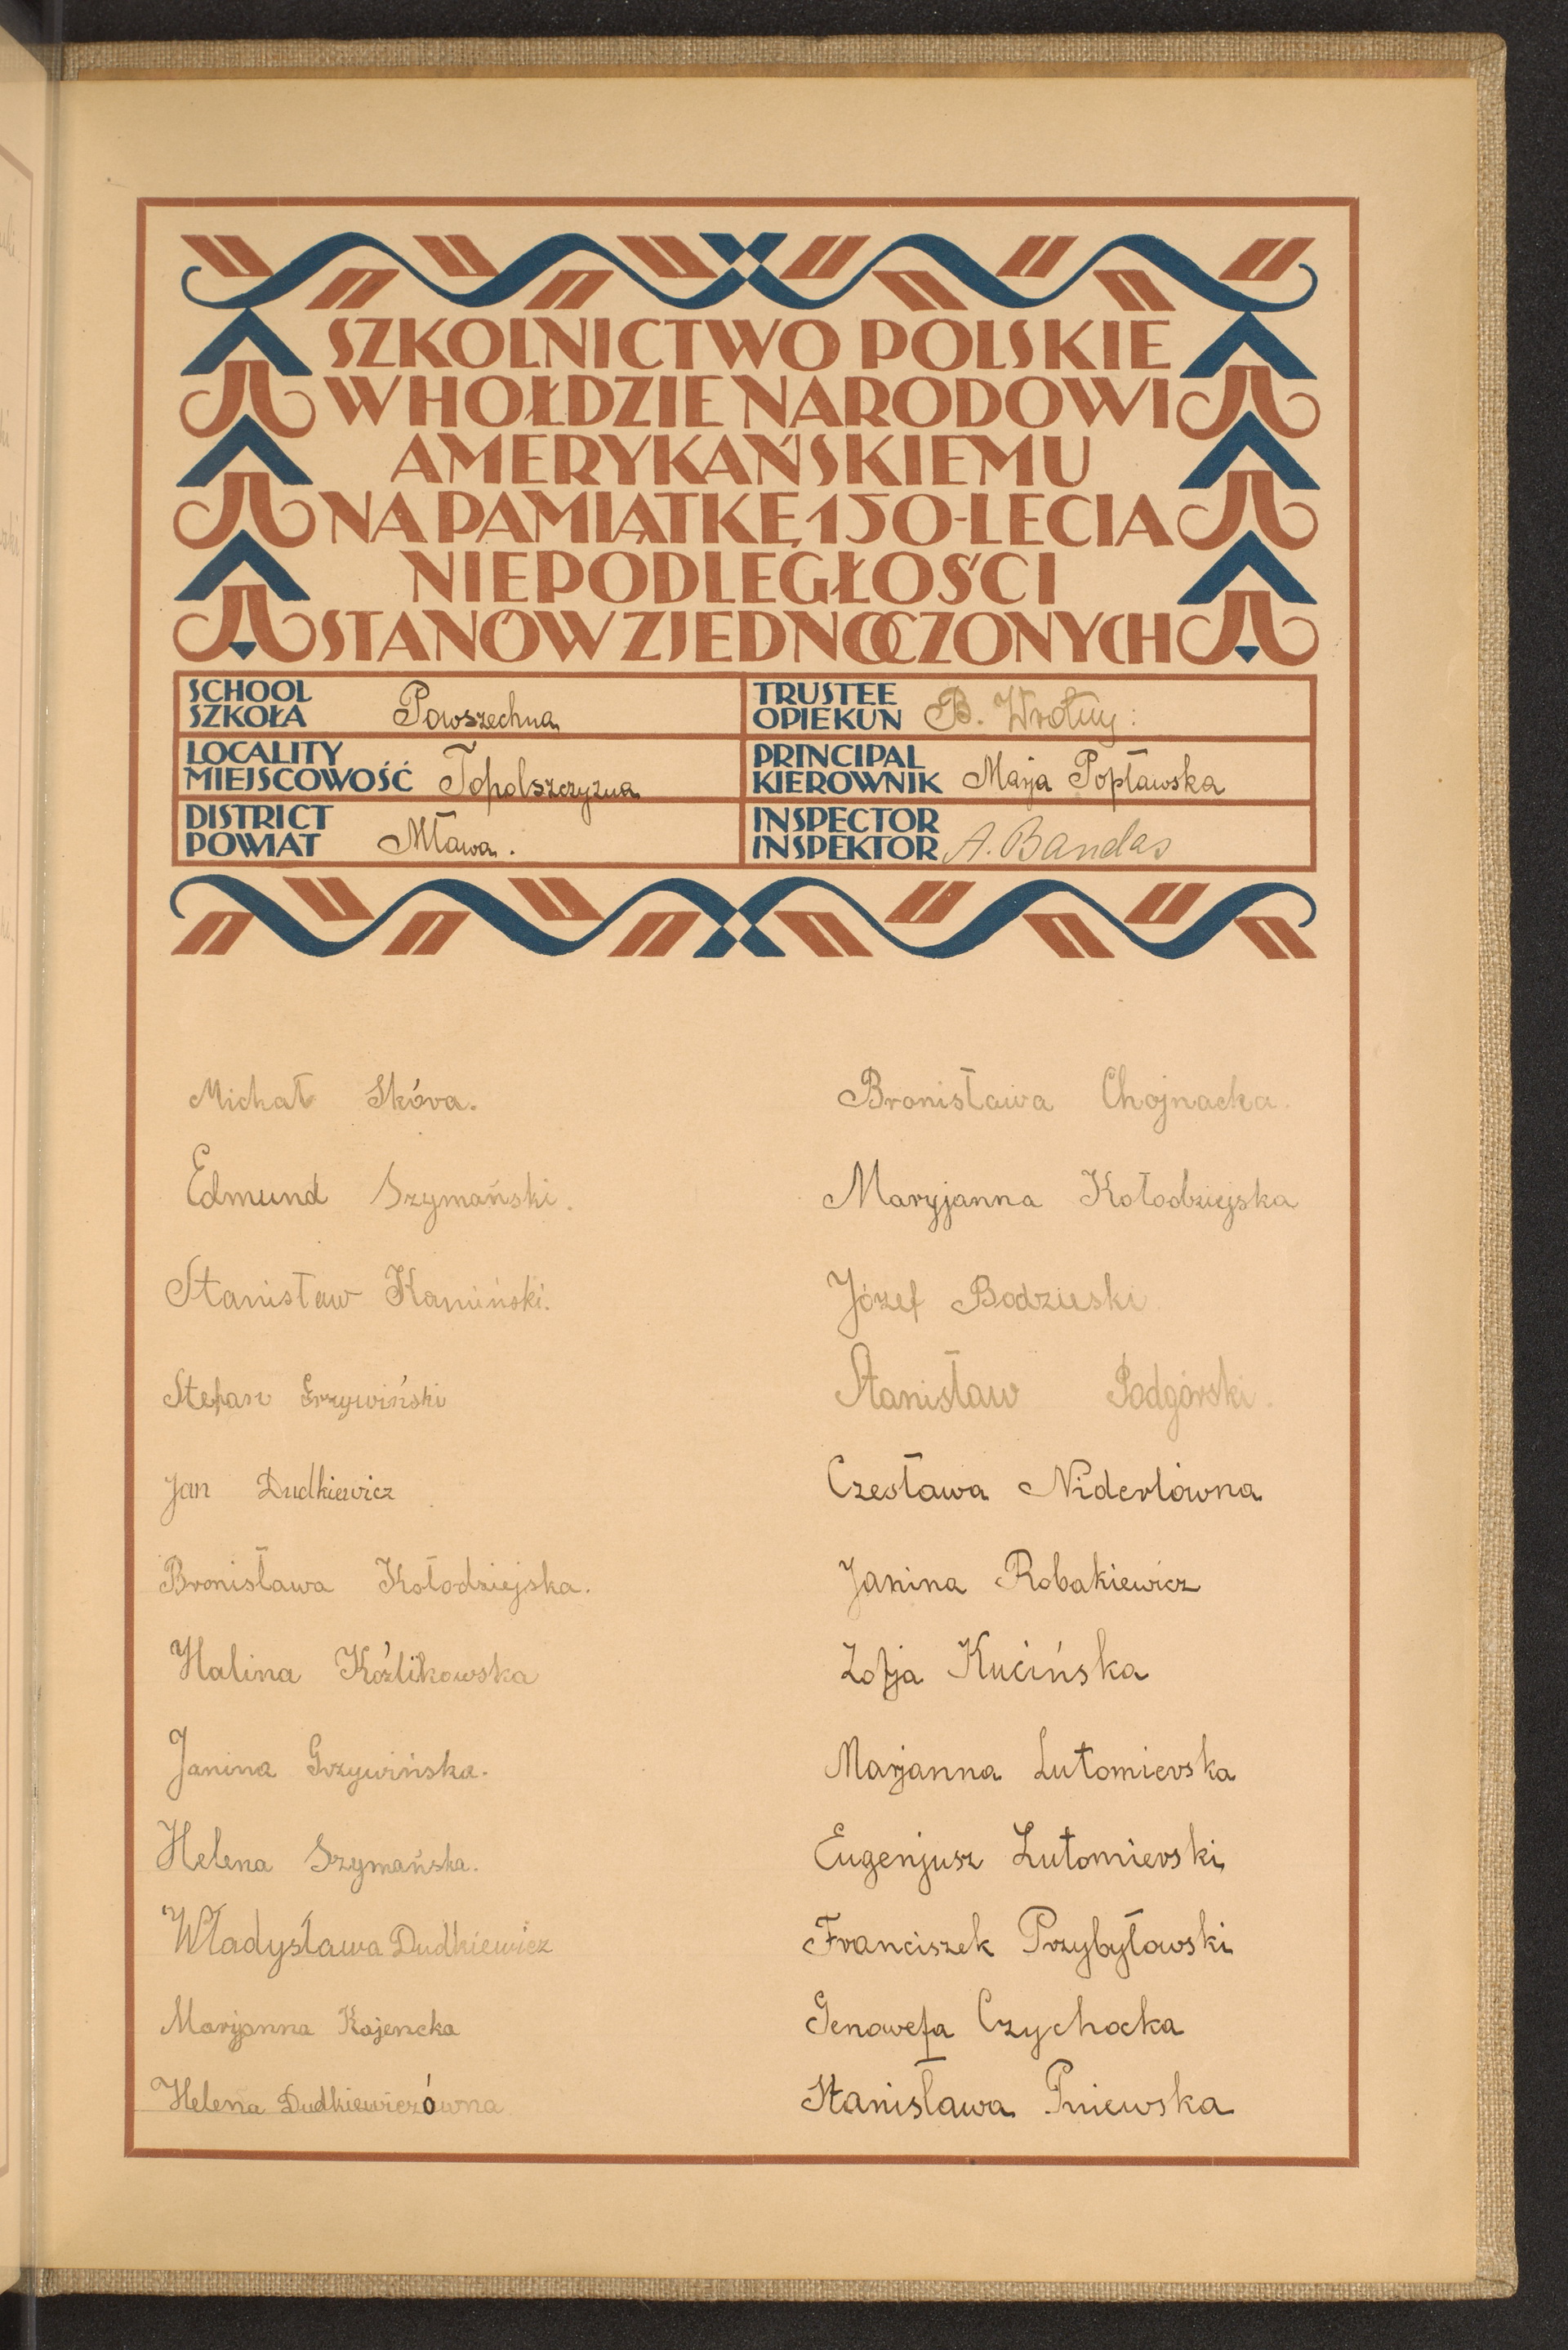 SZKOLNICTWO POLSKIE
W HOŁDZIE NARODOWI
AMERYKAŃSKIEMU
NA PAMIĄTKĘ 150-LECIA
NIEPODLEGŁOŚCI
STANÓW ZJEDNOCZONYCH
SCHOOL
SZKOŁA Powszechna
TRUSTEE
OPIEKUN B.
LOCALITY
MIEJSCOWOŚĆ Topolszczyzna
PRINCIPAL
KIEROWNIK Marja Popławska
DISTRICT
POWIAT Mława.
INSPECTOR
INSPEKTOR A. Bandas
Michał Skóra.
Edmund Szymański.
Stanisław Kamiński.
Stefan Grzywiński
Jan Dudkiewicz
Bronisława Kołodziejska.
Halina Koźlikowska
Janina Grzywińska.
Helena Szymańska.
Władysława Dudkiewicz
Maryjanna Kajencka
Helena Dudkiewiczówna
Bronisława Chojnacka.
Maryjanna Kołodziejska
Józef Bodzieski
Stanisław Podgórski.
Czesława Niderlówna
Janina Robakiewicz
Zofja Kucińska
Marjanna Lutomierska
Eugenjusz Lutomierski
Franciszek Przybyłowski
Genowefa Czychocka
Stanisława Pniewska